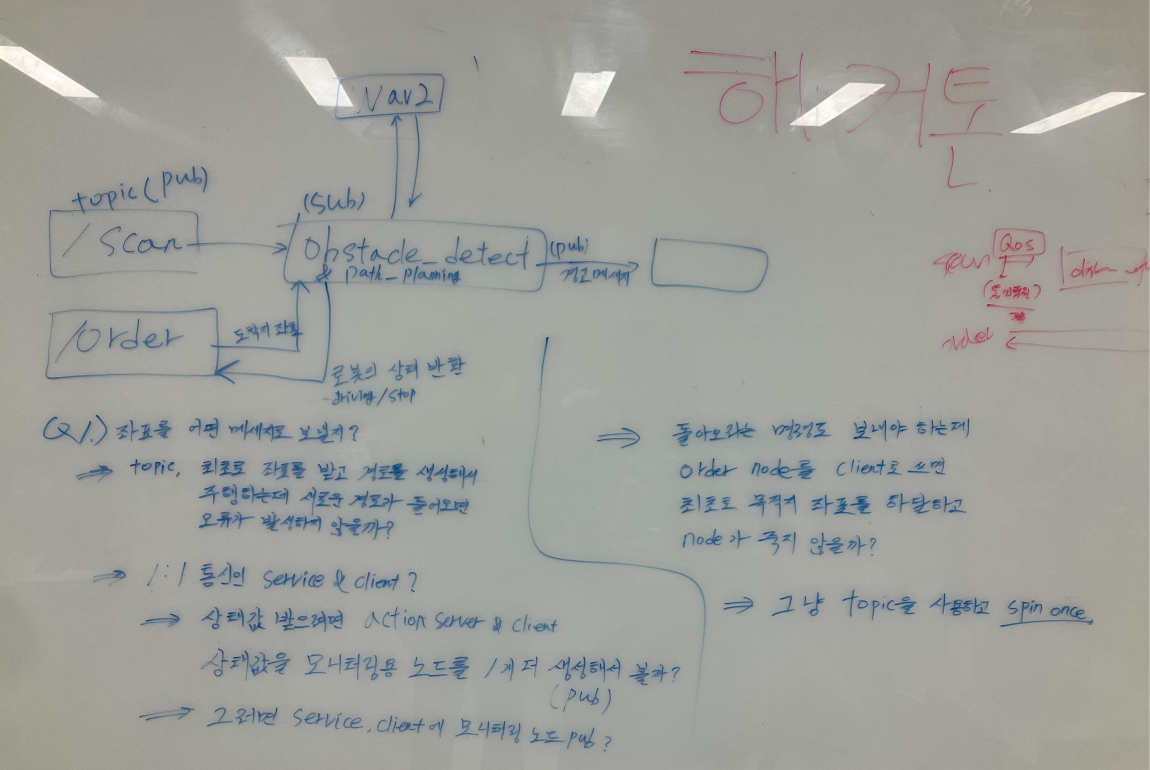 해커톤
Nav2
topic(pub)
(sub)
/scan
obstacle_detect
& path_planing
(pub)
경로메세지
Qos
scan
/order
도착지 좌표
로봇의 상태 반환
- driving/stop
Q1.) 좌표를 어떤 메세지로 보낼지?
⇒ topic, 최초로 좌표를 받고 경로를 생성해서
주행하는데 새로운 경로가 들어오면
오류가 발생하지 않을까?
⇒ 1:1 통신의 service & client?
⇒ 상태값 받으려면 action server & client
상태값을 모니터링용 노드를 1개 더 생성해서 볼까?
(pub)
⇒ 그러면 service, client에 모니터링 노드 pub?
⇒ 돌아오라는 명령도 보내야 하는데
order node를 client로 쓰면
최초로 목적지 좌표를 하달하고
node가 죽지 않을까?
⇒ 그냥 topic을 사용하고 spin once.